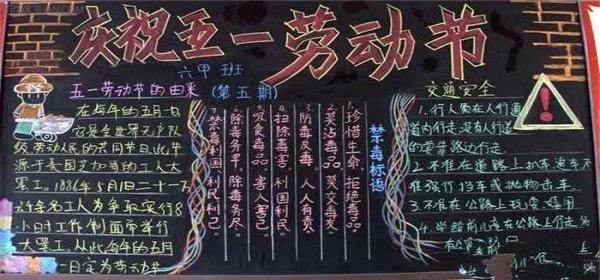 庆祝五一劳动节
六甲班
(第五期)
五一劳动节的由来
在每年的五月一日
它是全世界无产
级、劳动人民的共同节日,此节
源于美国芝加哥的工人大
罢工。1886年5月1日二十一
许多名工人为争取实行8
小时工作制而举行
大罢工,从此每年的五月
一日定为劳动节
禁毒标语
1.珍惜生命。拒绝毒品。
2.莫沾毒品。莫交毒友。
3.防毒反毒。人人有责。
4.扫除毒害。利国利民。
5.吸食毒品。害人害己。
6.除毒务早。除毒务尽。
7.禁毒利国。利民利己。
交通安全
1.行人要在人行道
内行走没有人行道
的要靠路边行走
2.不准在道路上扒车追车不
准强行拦车或抛物击车
3.不准在公路上玩耍嬉闹
4.学龄前儿童在公路上行走